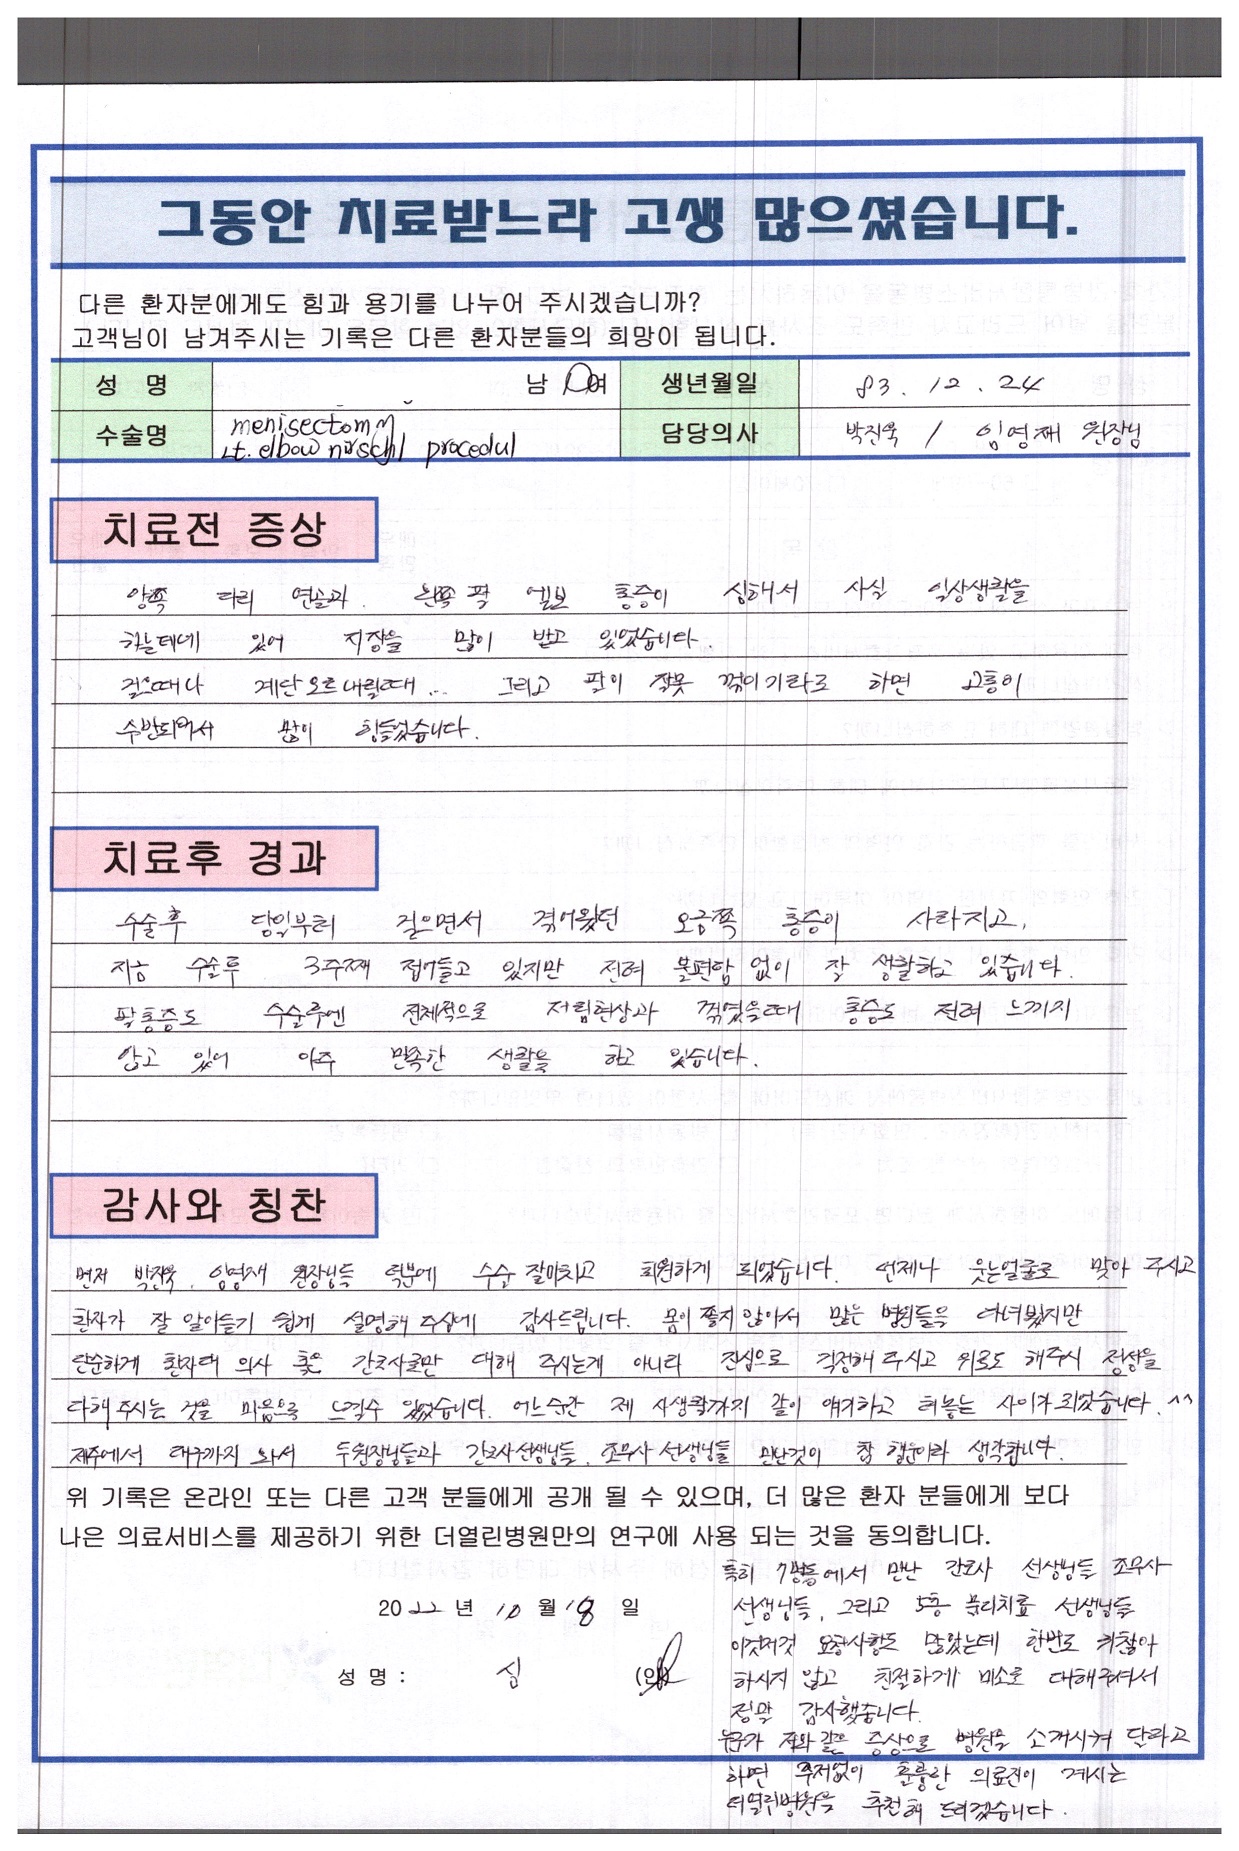 그동안 치료받느라 고생 많으셨습니다.
다른 환자분에게도 힘과 용기를 나누어 주시겠습니까?
고객님이 남겨주시는 기록은 다른 환자분들의 희망이 됩니다.
성 명 남 여 생년월일 83. 12. 24
수술명 menisectomy 담당의사 박진욱 / 임영재 원장님
Lt. elbow nirschl procedul
치료전 증상
양쪽 다리 연골과. 왼쪽 팔 엘보 통증이 심해서 사실 일상생활을
하는데에 있어 지장을 많이 받고 있었습니다.
걸을때나 계단 오르내릴때... 그리고 팔이 잘못 꺾이기라도 하면 고통이
수반되어서 많이 힘들었습니다.
치료후 경과
수술후 당일부터 걸으면서 겪어왔던 오금쪽 통증이 사라지고,
지금 수술후 3주째 접어들고 있지만 전혀 불편함 없이 잘 생활하고 있습니다.
팔통증도 수술후엔 전체적으로 저림현상과 꺾였을때 통증도 전혀 느끼지
않고 있어 아주 만족한 생활을 하고 있습니다.
감사와 칭찬
먼저 박진욱, 임영재 원장님들 덕분에 수술 잘마치고 퇴원하게 되었습니다. 언제나 웃는얼굴로 맞아 주시고
환자가 잘 알아듣기 쉽게 설명해 주심에 감사드립니다. 몸이 좋지 않아서 많은 병원들을 다녀봤지만
단순하게 환자대 의사 혹은 간호사로만 대해 주시는게 아니라 진심으로 걱정해 주시고 위로도 해주시 정성을
다해 주시는 것을 마음으로 느낄수 있었습니다. 어느순간 제 사생활까지 같이 얘기하고 터놓는 사이가 되었습니다. ^^
제주에서 대구까지 와서 두원장님들과 간호사선생님들, 조무사 선생님들 만난것이 참 행운이라 생각합니다.
위 기록은 온라인 또는 다른 고객 분들에게 공개 될 수 있으며, 더 많은 환자 분들에게 보다
나은 의료서비스를 제공하기 위한 더열린병원만의 연구에 사용 되는 것을 동의합니다.
2022 년 10 월 18 일
성 명 : 심 (인)
특히 7병동에서 만난 간호사 선생님들 조무사
선생님들, 그리고 5층 물리치료 선생님들
이것저것 요청사항도 많았는데 한번도 귀찮아
하시지 않고 친절하게 미소로 대해주셔서
정말 감사했습니다.
누군가 저와 같은 증상으로 병원을 소개시켜 달라고
하면 주저없이 훌륭한 의료진이 계시는
더열린병원을 추천해 드리겠습니다.